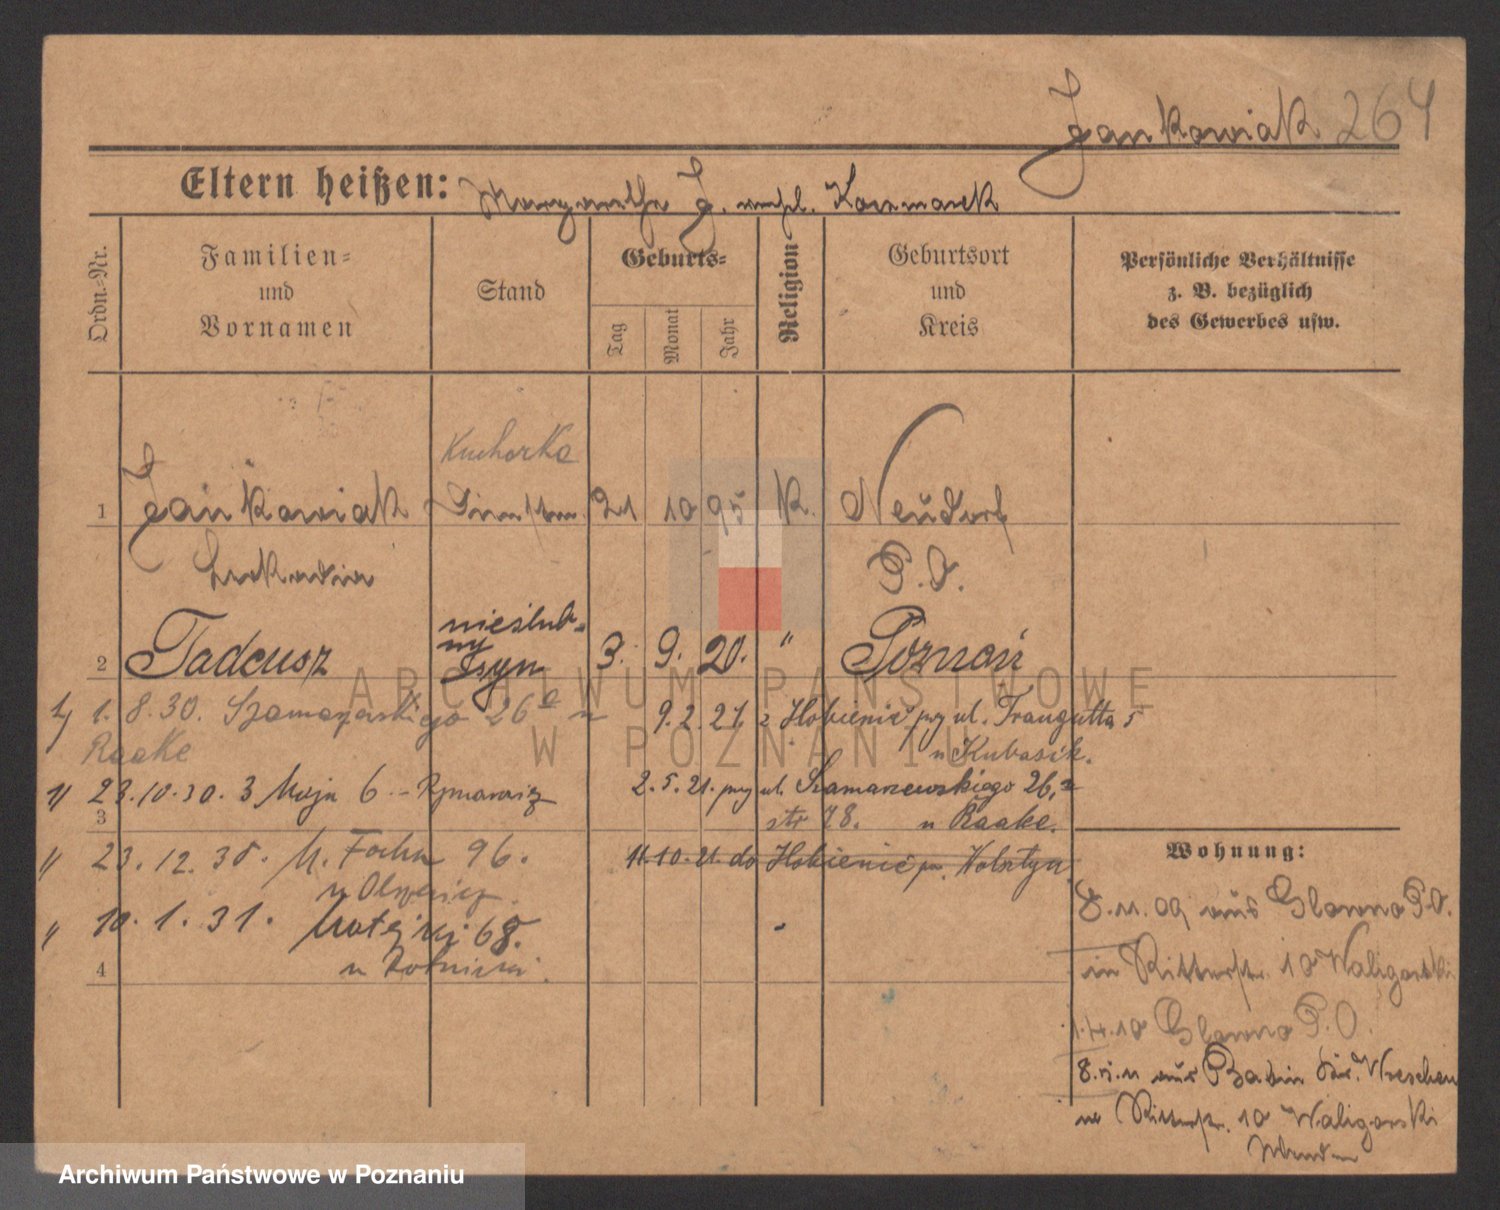 Jankowiak 264
Eltern heißen: Margaretha J. verhl. Kaczmarek
Ordn.-Nr.
Familien-
und
Vornamen
Stand
Geburts-
Tag
Monat
Jahr
Religion
Geburtsort
und
Kreis
Persönliche Verhältnisse
z. B. bezüglich
des Gewerbes usw.
Kucharka
1 Jankowiak 21 10 95 K. Neudorf
Leokadia P.O.
nieślub-
ny
2 Tadeusz syn 3. 9. 20. " Poznań
1. 8. 30. Szamarzewskiego 26a u
9.2.21 z Hobienic przy ul. Traugutta 5
Raake
u Kubasik.
23.10.30. 3 Maja 6
2.5.21. przy ul. Szamarzewskiego 26a
3
str 78. u Raake.
Wohnung:
23. 12. 30. M. Focha 96.
11.10.21 do Hobienic p. Wolsztyn
8.11.09 aus Glowno P.O.
10. 1. 31. Matejki 68.
in Ritterstr. 10 Waligorski
4
1.4.10 Glowno P.O.
8.5.11 aus Kr. Wreschen
Ritterstr. 10 Waligorski
ARCHIWUM PAŃSTWOWE
W POZNANIU
Archiwum Państwowe w Poznaniu